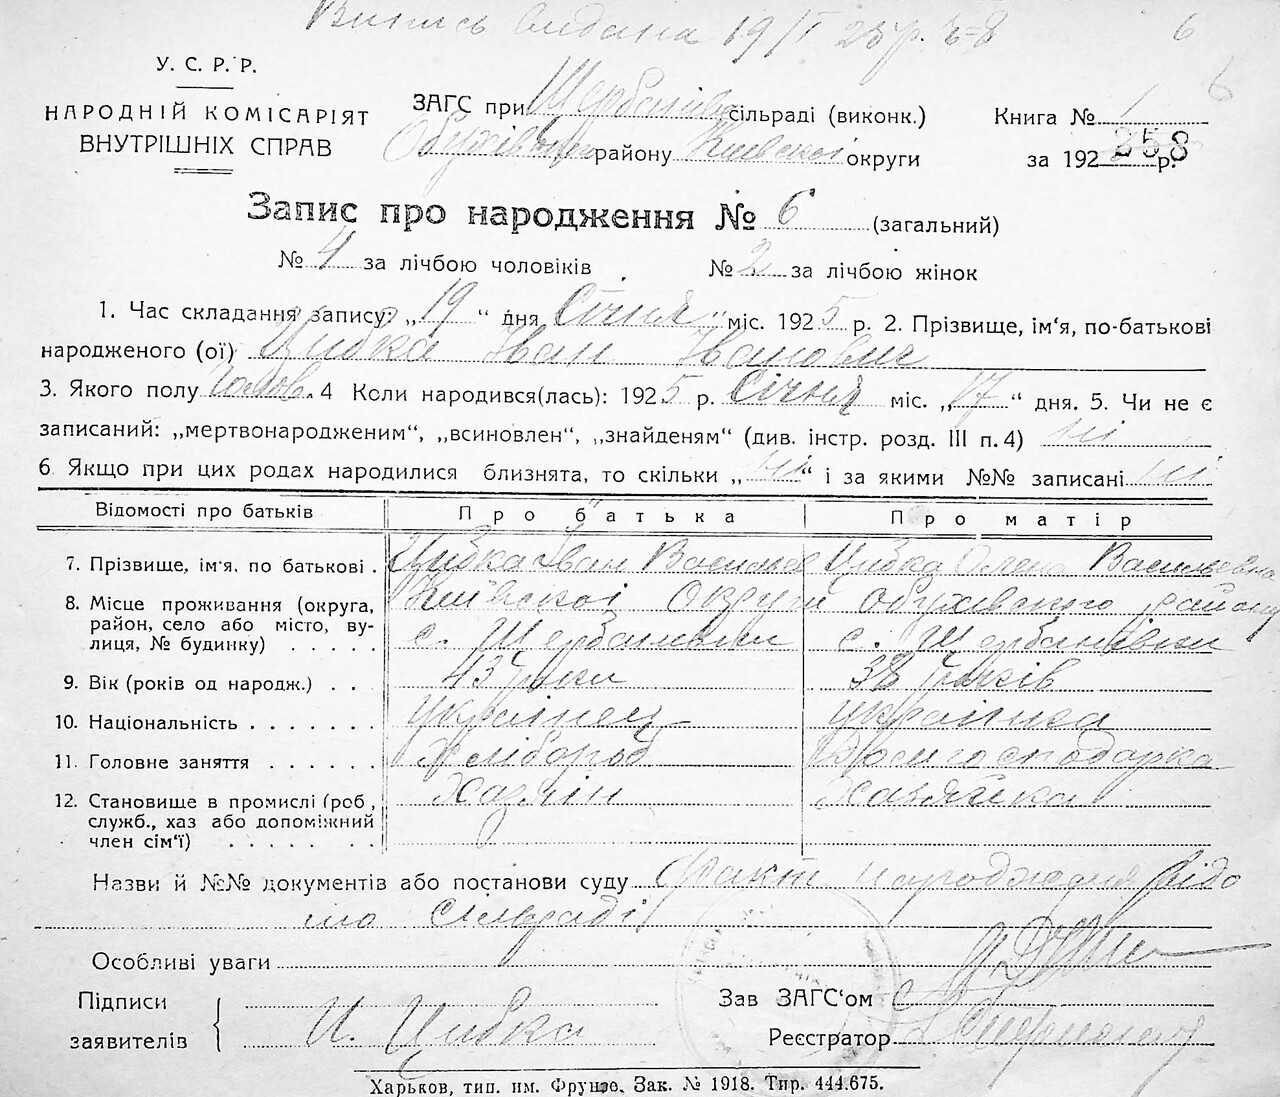 Випись видана 19/I 25 р. 6
У. С. Р. Р. 6
НАРОДНІЙ КОМІСАРІЯТ
ВНУТРІШНІХ СПРАВ
ЗАГС при Щербанівс сільраді (виконк.)
Обухівськ району Київскоі округи
Книга № 1
за 192 р.
258
Запис про народження № 6 (загальний)
№ 4 за лічбою чоловіків № 2 за лічбою жінок
1. Час складання запису: „19“ дня Січня міс. 1925 р. 2. Прізвище, ім'я, по-батькові
народженого (ої) Цибка Іван Іванович
3. Якого полу чолов. 4 Коли народився(лась): 1925 р. Січня міс. „17“ дня. 5. Чи не є
записаний: „мертвонародженим“, „всиновлен“, „знайденям“ (див. інстр. розд. III п. 4) ні
6 Якщо при цих родах народилися близнята, то скільки „ні“ і за якими №№ записані ні
Відомості про батьків Про батька Про матір
7. Прізвище, ім'я, по батькові . Цибка Іван Васильев Цибка Олена Васильевна
8. Місце проживання (округа, Київскоі Округи обухівского району
район, село або місто, ву-
лиця, № будинку) . . . . . с. Щербанівки с. Щербанівки
9. Вік (років од народж.) . . 43 роки 38 років
10. Національність . . . . . . українец українка
11. Головне заняття . . . . . . Хлібороб Домогосподарка
12. Становище в промислі (роб., Хазяін Хазяйка
служб., хаз або допоміжний
член сім'ї) . . . . . .
Назви й №№ документів або постанови суду Факт народження відо
мо сільраді
Особливі уваги
Підписи
заявителів И. Цибка
Зав ЗАГС'ом
Реєстратор
Харьков, тип. им. Фрунзе. Зак. № 1918. Тир. 444.675.